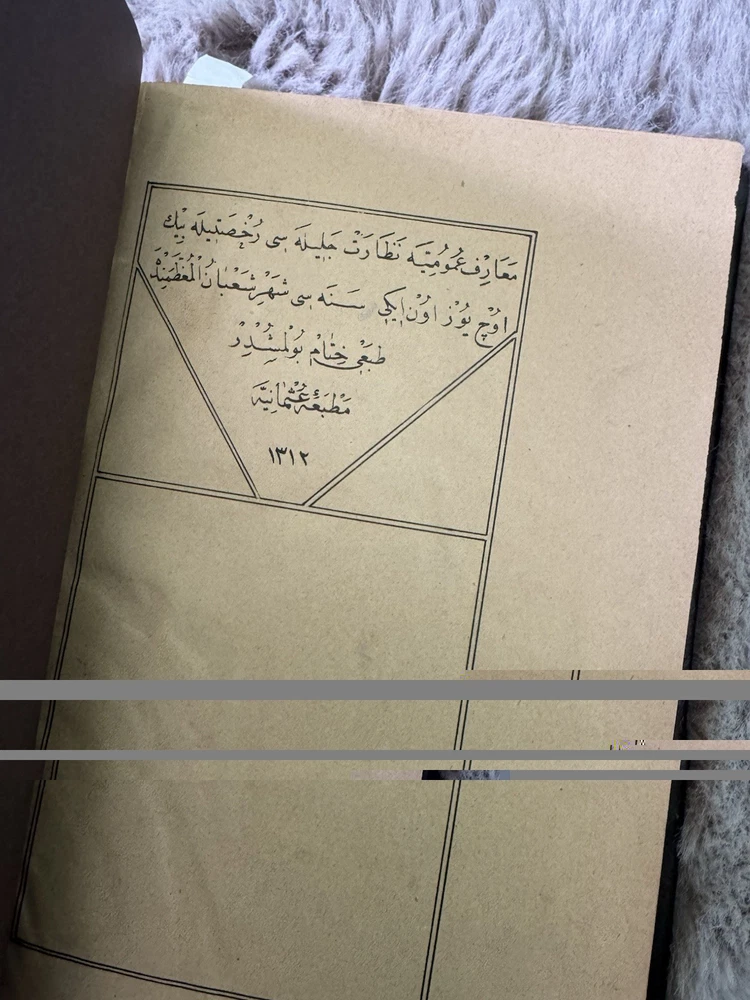 مَعَارِفِ عُمُومِيَّه نَظَارَتْ جَلِيلَه سِى رُخْصَتِيلَه بِيْك
اوُچْ يُوزْ اوُنْ اِيكِى سَنَه سِى شَهْرِ شَعْبَانُ الْمُعَظَّمِنْدَه
طَبْعِى خِتَامْ بُولْمُشْدِرْ
مَطْبَعَۀ عُثْمَانِيَّه
١٣١٢